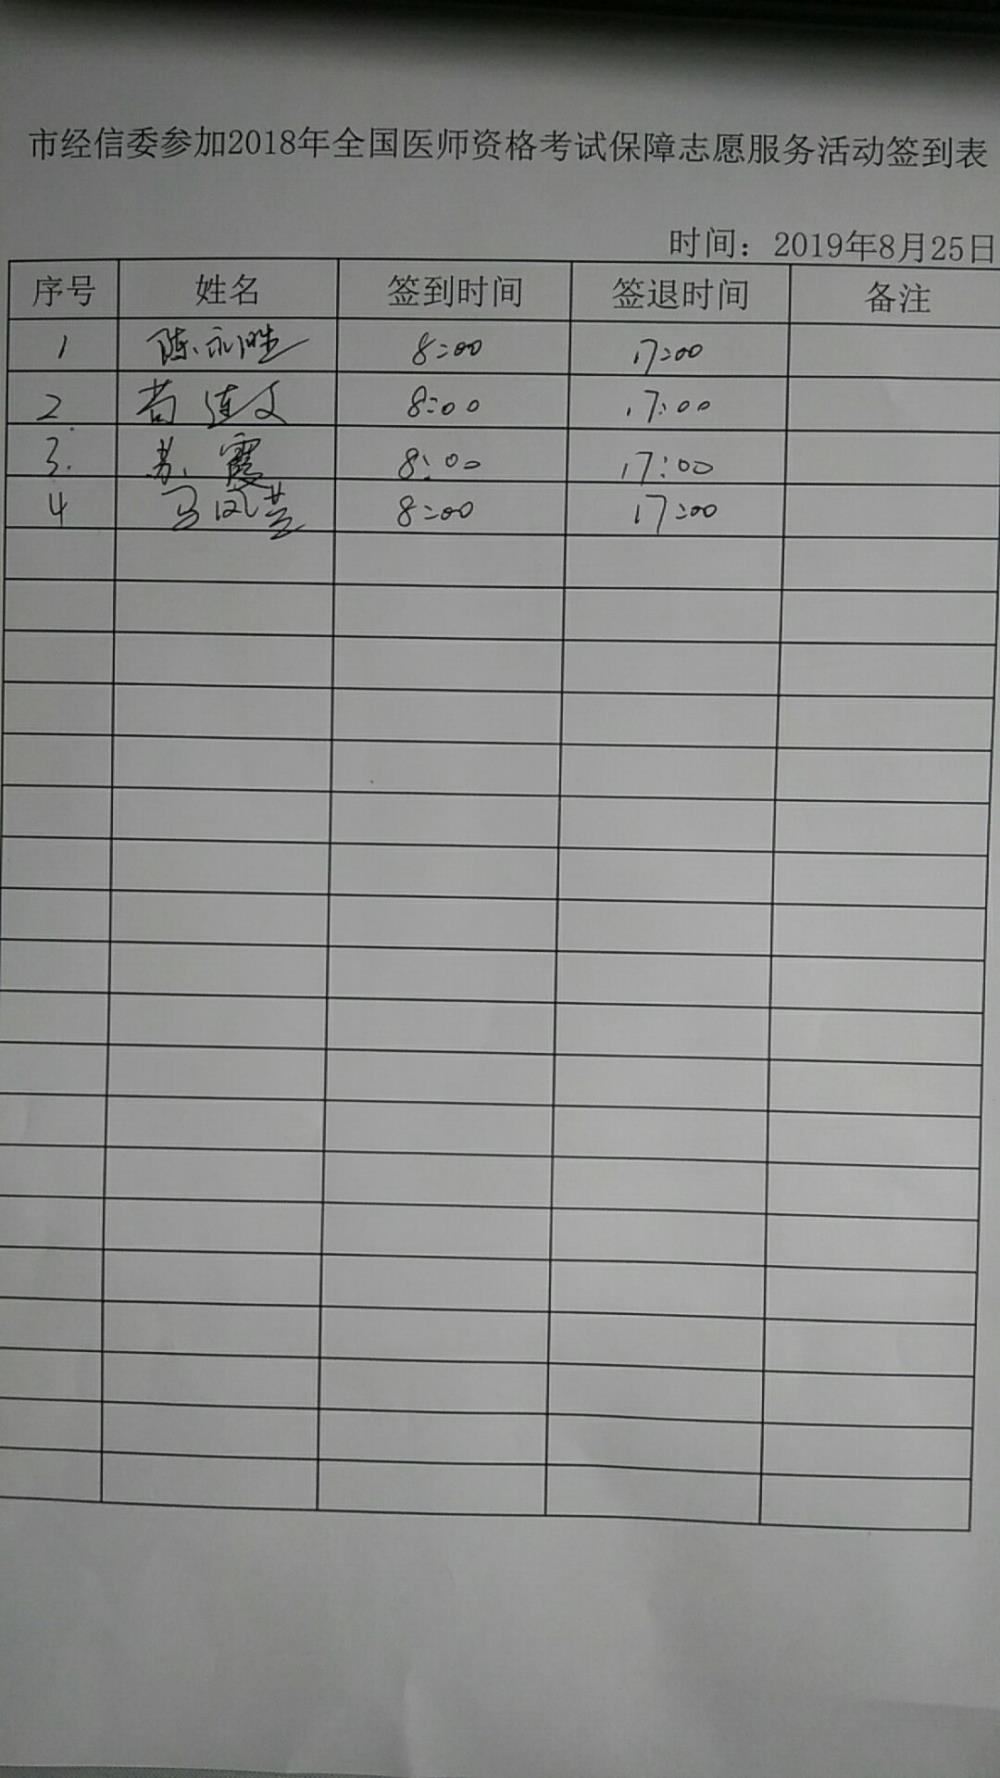 市经信委参加2018年全国医师资格考试保障志愿服务活动签到表
时间：2019年8月25日
序号 姓名 签到时间 签退时间 备注
1 陈永胜 8:00 17:00
2 苟连文 8:00 17:00
3. 苏霞 8:00 17:00
4 马凤兰 8:00 17:00